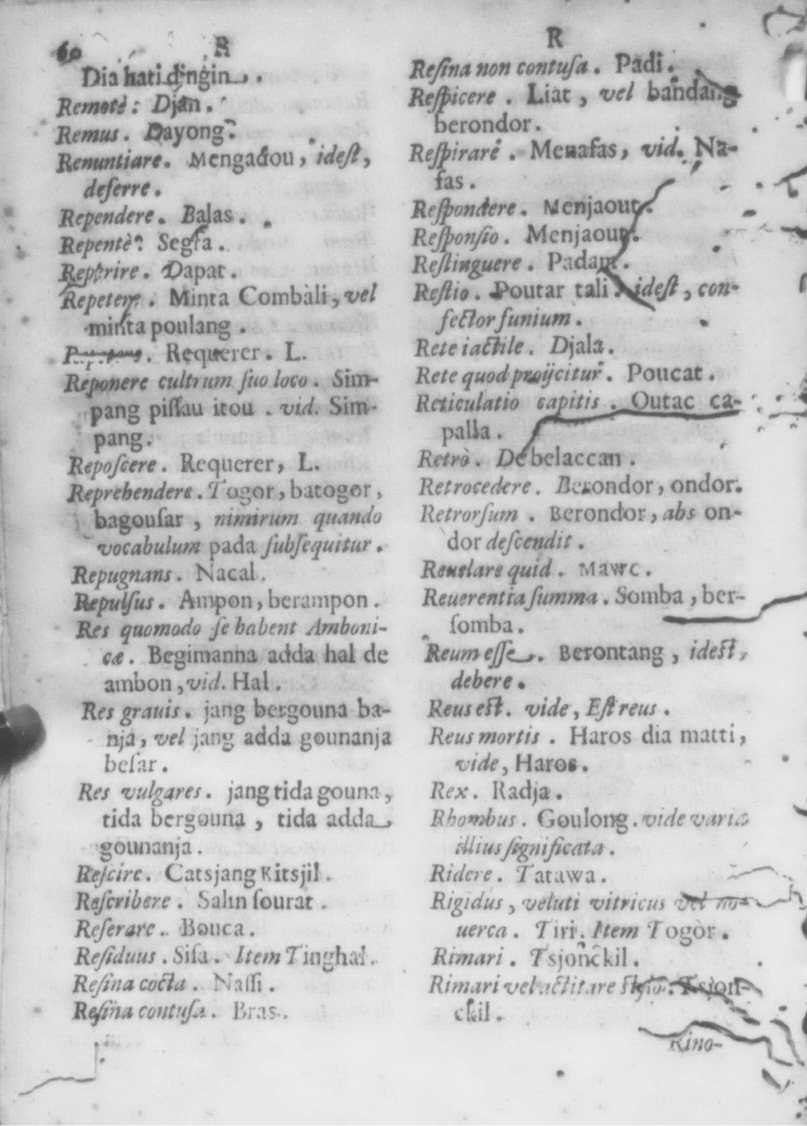 60 R
Dia hati dingin.
Remotè: Djan.
Remus. Dayong.
Renuntiare. Mengadou, idest,
deferre.
Rependere. Balas.
Repentè. Segra.
Reperire. Dapat.
Repetere. Minta Combàli, vel
minta poulang.
Requerer. L.
Reponere cultrum suo loco. Sim-
pang pissau itou. vid. Sim-
pang.
Reposcere. Requerer, L.
Reprehendere. Togor, batogor,
bagousar, nimirum quando
vocabulum pada subsequitur.
Repugnans. Nacal.
Repulsus. Ampon, berampon.
Res quomodo se habent Amboni-
cæ. Begimanna adda hal de
ambon, vid. Hal.
Res grauis. jang bergouna ba-
nja, vel jang adda gounanja
besar.
Res vulgares. jang tida gouna,
tida bergouna, tida adda
gounanja.
Rescire. Catsjang Kitsjil.
Rescribere. Salin sourat.
Reserare. Bouca.
Residuus. Sisa. Item Tinghal.
Resina cocta. Nassi.
Resina contusa. Bras.
R
Resina non contusa. Padi.
Respicere. Liat, vel bandang
berondor.
Respirare. Menafas, vid. Na-
fas.
Respondere. Menjaout.
Responsio. Menjaout.
Restinguere. Padam.
Restio. Poutar tali. idest, con-
fector funium.
Rete iactile. Djala.
Rete quod proijcitur. Poucat.
Reticulatio capitis. Outac ca-
palla.
Retrò. Debelaccan.
Retrocedere. Berondor, ondor.
Retrorsum. Berondor, abs on-
dor descendit.
Reuelare quid. Mawe.
Reuerentia summa. Somba, ber-
somba.
Reum esse. Berontang, idest,
debere.
Reus est. vide, Est reus.
Reus mortis. Haros dia matti,
vide, Haros.
Rex. Radja.
Rhombus. Goulong. vide varia
illius significata.
Ridere. Tatawa.
Rigidus, veluti vitricus vel no-
uerca. Tiri. Item Togòr.
Rimari. Tsjonckil.
Rimari vel actitare Tsjon-
ckil.
Rino-